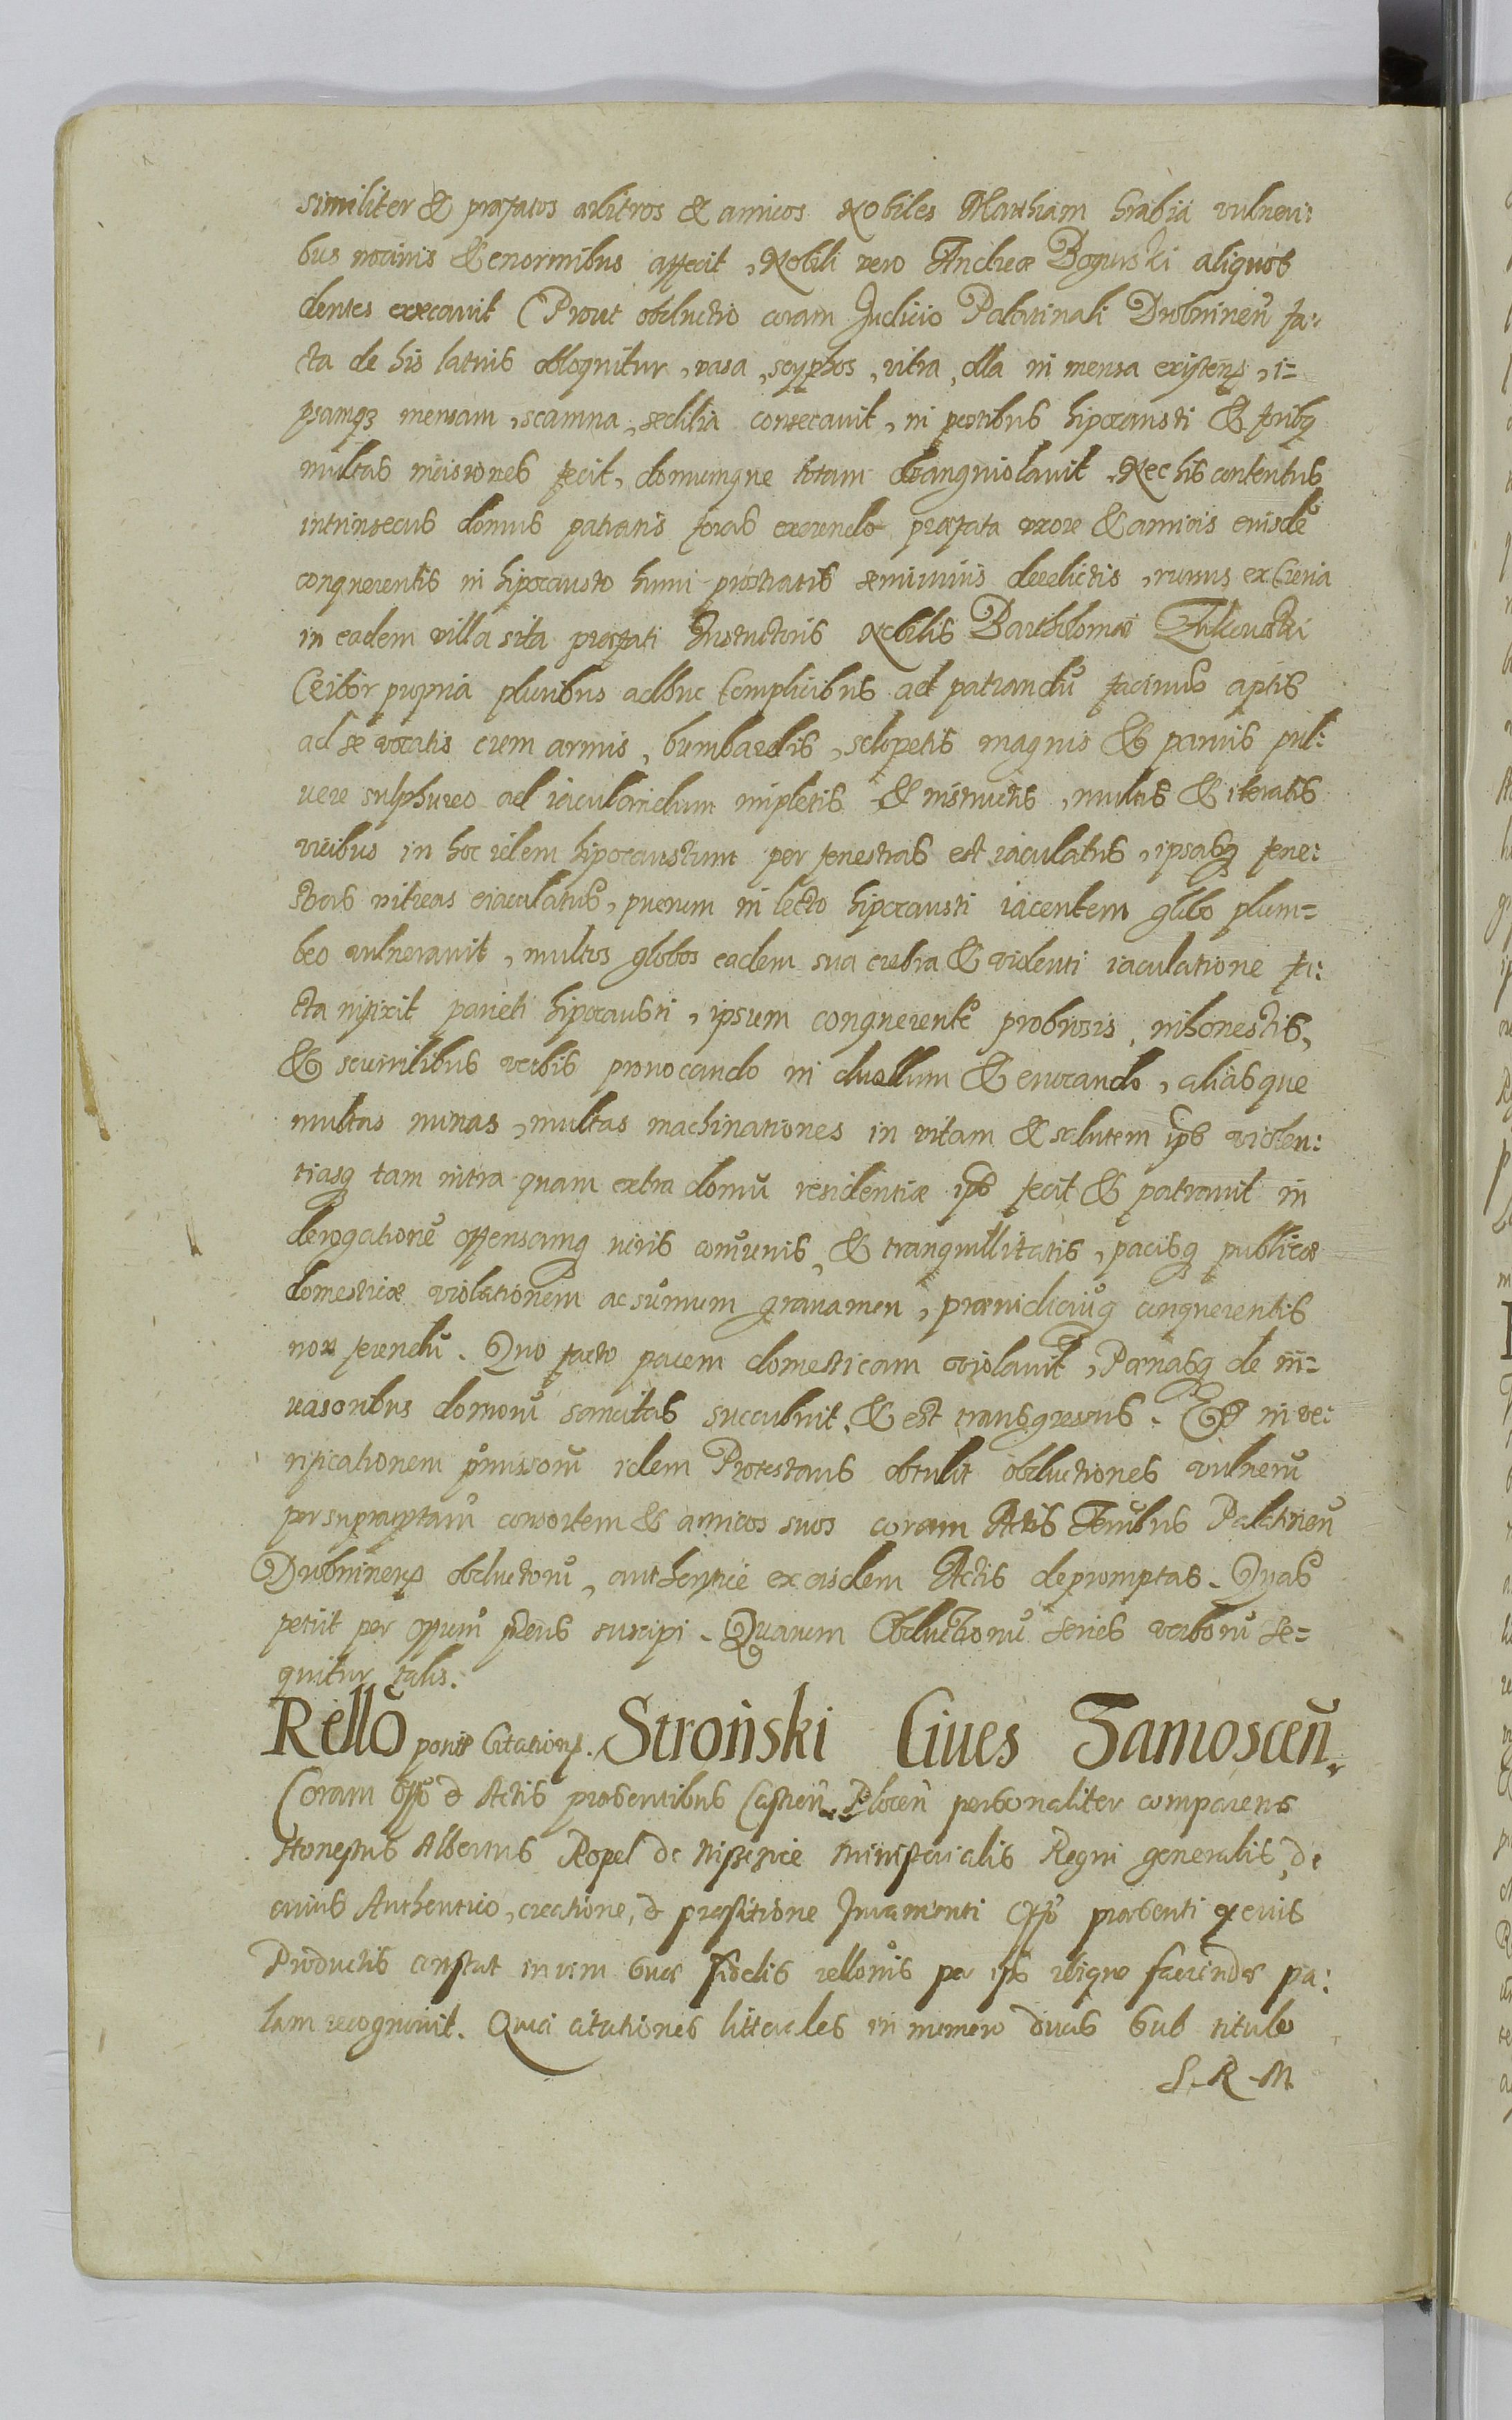 similiter & præfatos arbitros & amicos Nobiles Mathiam hrabia vulneri:
bus nocivis & enormibus affecit, Nobili vero Andreæ Bogurski aliquot
dentes execavit (Prout obductio coram Judicio Palatinali Drobninen̄ fa:
cta de his latius obloquitur, vasa, scyphos, vitra, olla in mensa existen̄, i=
psamqȝ mensam, scamna, sedilia consecavit, in postibus hipocausti & foribq
multas incisiones fecit, domumque totam Nec his contentus
intrinsecus domus patratis foras exeundo præfata uxore & amicis eiusdē
conquerentis in hipocausto humi prostratis semivivis derelictis, rursus ex Curia
in eadem villa sita præfati Nobilis Bartholomæi
propria pluribus adhuc Complicibus ad patrandū facinus aptis
ad se vocatis cum armis, bumbardis, sclopetis magnis & parvis pul:
vere sulphureo ad iaculandum impletis & instructis, multis & iteratis
vicibus in hoc idem hipocaustum per fenestras est iaculatus, ipsasq fene:
stras vitreas eiaculatus, puerum in lecto hipocausti iacentem globo plum=
beo vulneravit, multos globos eadem sua crebra & videnti iaculatione fa:
cta infixit parieti hipocausti, ipsum conquerentē probrosis, inhonestis,
& scurrilibus verbis provocando in duellum & evocando, aliasque
multas minas, multas machinationes in vitam & salutem ips violen:
tiasq tam intra quam extra domū residentiæ ips fecit & patravit in
derogationē offensamq iuris comunis, & tranquillitatis, pacisq publicæ
domesticæ violationem ac sumum gravamen, præiudiciūq conquerentis
non ferendū. Quo facto pacem domesticam violavit, Pænasq de in=
vasoribus domorū sancitas succubuit, & est transgressus. Et in ve:
rificationem præmissorū idem Protestans obtulit obductiones vulnerū
per supraptam consortem & amicos suos coram Actis Palatinen̄
Drobninen̄ obductorū, authentice ex eisdem Actis depromptas. Quas
petiit per offum præns suscipi. Quarum Obductionū series verborū se=
quitur talis.
Rellō ponis Citation̄. Stroński Cives Zamoscen̄.
Coram offo & Actis præsentibus Castren̄ Plocen̄ personaliter comparens
Honestus Albertus Ropel de ministerialis Regni generalis, de
cuius Authentico, creatione, & præstitione Juramenti Offo præsenti q eius
Productis constat in vim suæ fidelis rellonis per ips ibique faciendæ pa:
lam recognovit. Quia citationes litterales in numero duas Sub titulo
S. R. M.